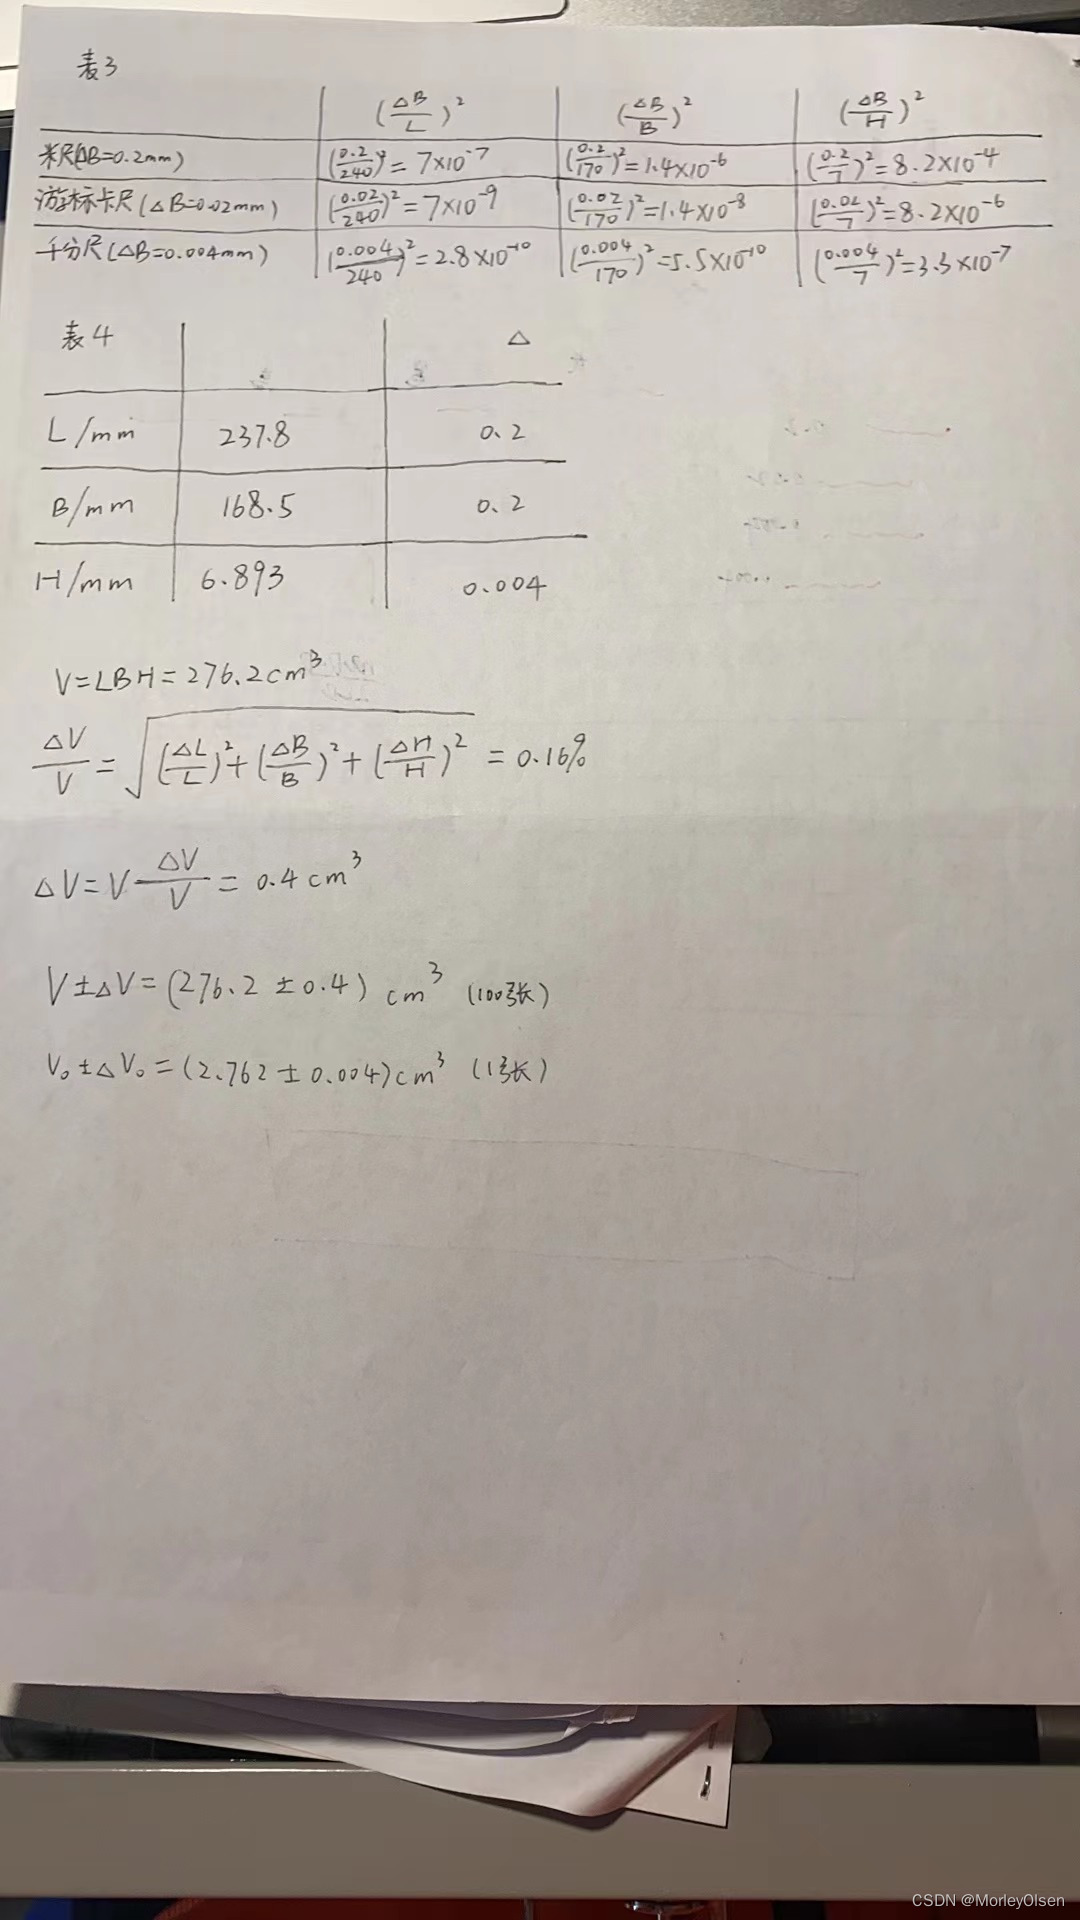 表3
(ΔB/L)² (ΔB/B)² (ΔB/H)²
米尺(ΔB=0.2mm) (0.2/240)²=7×10⁻⁷ (0.2/170)²=1.4×10⁻⁶ (0.2/7)²=8.2×10⁻⁴
游标卡尺(ΔB=0.02mm) (0.02/240)²=7×10⁻⁹ (0.02/170)²=1.4×10⁻⁸ (0.02/7)²=8.2×10⁻⁶
千分尺(ΔB=0.004mm) (0.004/240)²=2.8×10⁻¹⁰ (0.004/170)²=5.5×10⁻¹⁰ (0.004/7)²=3.3×10⁻⁷
表4 Δ
L/mm 237.8 0.2
B/mm 168.5 0.2
H/mm 6.893 0.004
V=LBH=276.2cm³
ΔV/V=√((ΔL/L)²+(ΔB/B)²+(ΔH/H)²)=0.16%
ΔV=V ΔV/V=0.4cm³
V±ΔV=(276.2±0.4) cm³ (100张)
V₀±ΔV₀=(2.762±0.004)cm³ (1张)
CSDN @MorleyOlsen